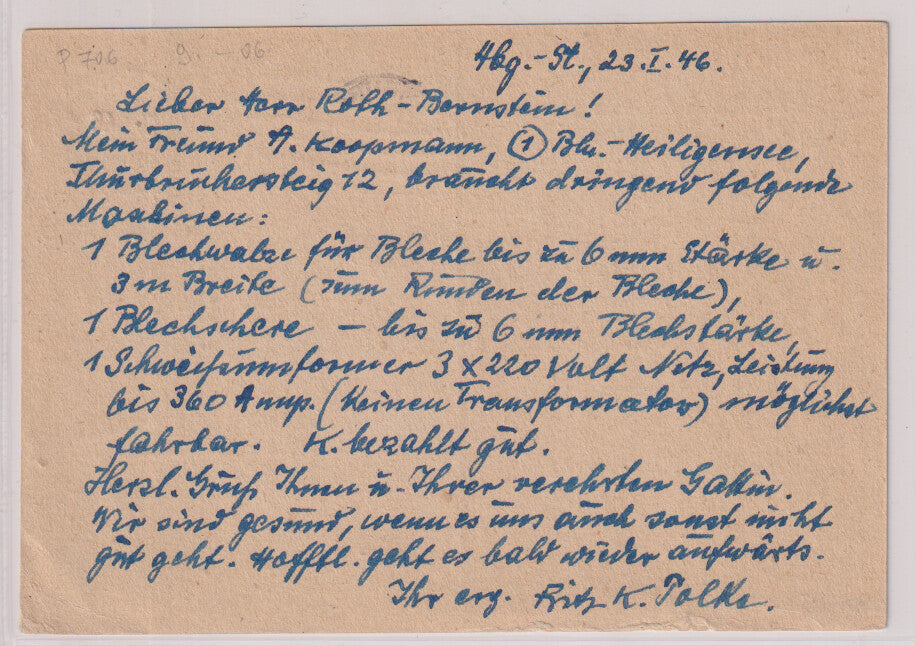 P 706 9. - 06
Hbg.-St., 23.I.46.
Lieber Herr Roth-Bernstein!
Mein Freund A. Koopmann, ① Bln.-Heiligensee,
12, braucht dringend folgende
Maschinen:
1 Blechwalze für Bleche bis zu 6 mm Stärke u.
3 m Breite (zum Runden der Bleche),
1 Blechschere – bis zu 6 mm Blechstärke,
1 Schweißumformer 3 x 220 Volt Netz, Leistung
bis 360 Amp. (Keinen Transformator) möglichst
fahrbar. K. bezahlt gut.
Herzl. Gruß Ihnen u. Ihrer verehrten Gattin.
Wir sind gesund, wenn es uns auch sonst nicht
gut geht. Hofftl. geht es bald wieder aufwärts.
Ihr erg. Fritz K. Polke.